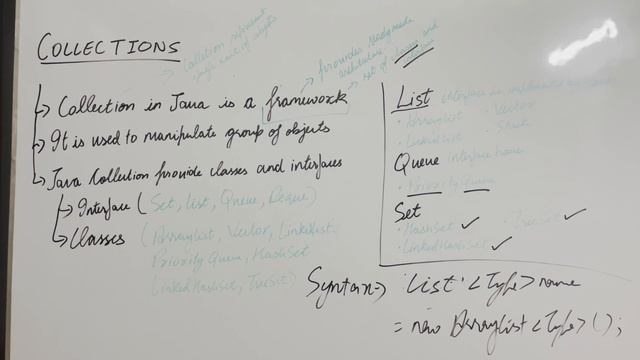 COLLECTIONS
Collection represent
single unit of objects
provides readymade
architecture
set of classes and
Collection in Java is a framework
It is used to manipulate group of objects
Java Collection provide classes and interfaces
Interface (Set, List, Queue, Deque)
Classes (ArrayList, Vector, LinkedList,
Priority Queue, HashSet
LinkedHashSet, TreeSet)
List interface is implemented
ArrayList Vector
LinkedList Stack
Queue Interface
Priority Queue
Set
HashSet TreeSet
LinkedHashSet
Syntax → List <Type> name
= new ArrayList <Type> ();